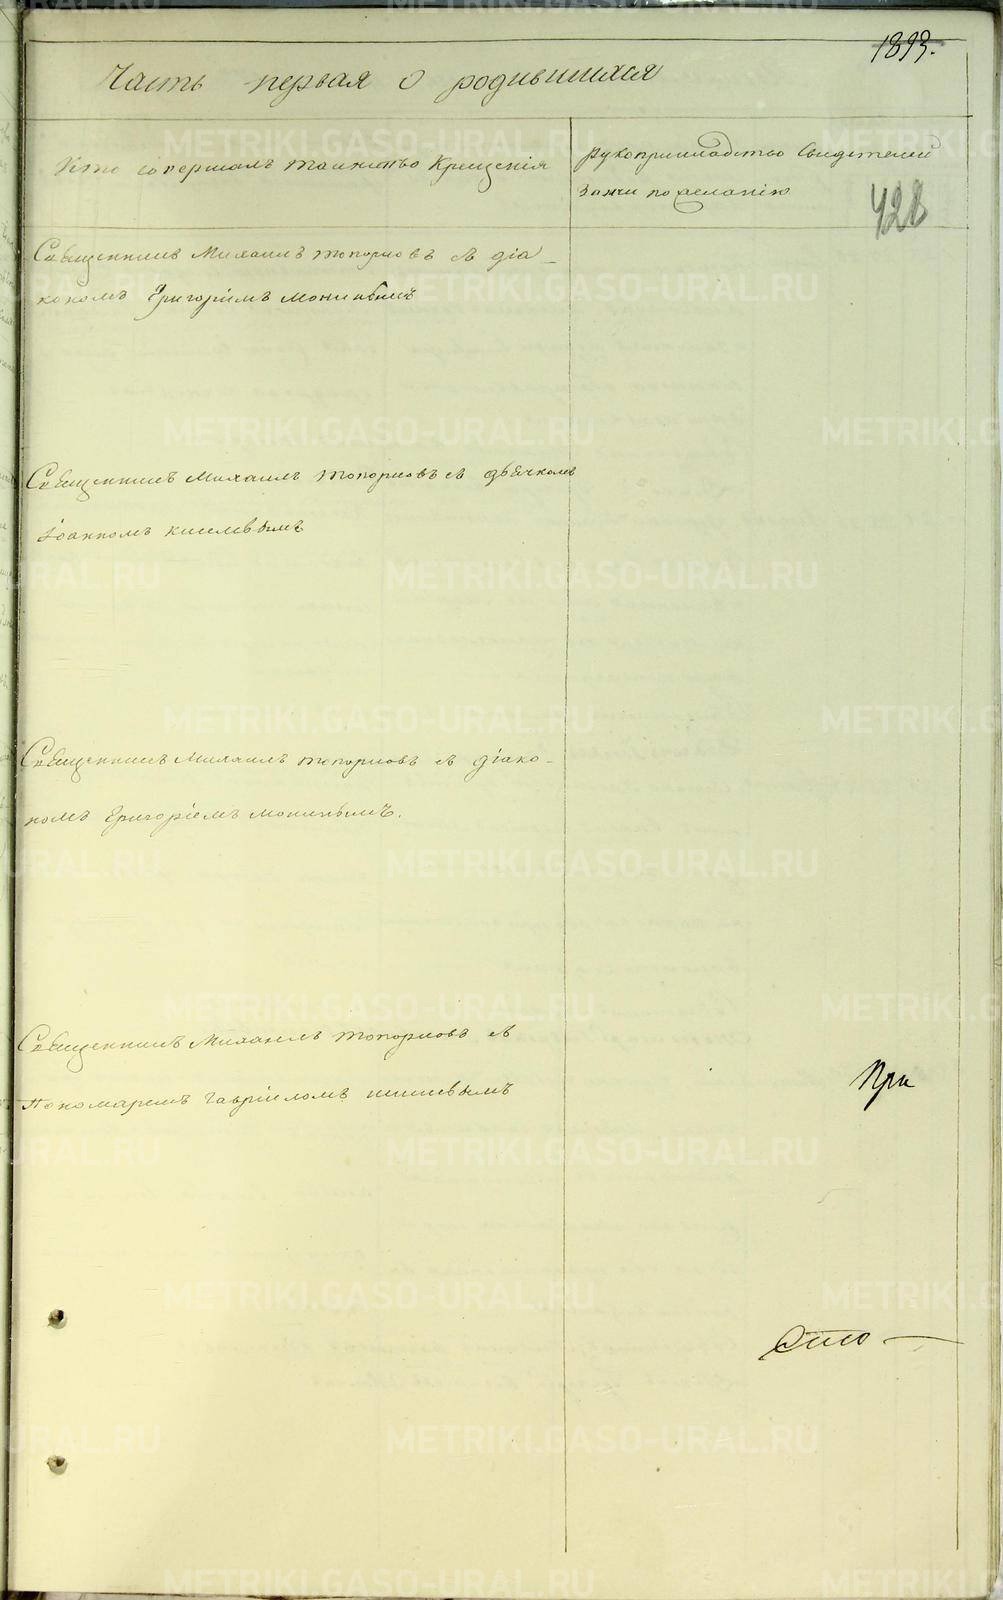 1893.
Часть первая о родившихся
Кто совершалъ таинство Крещенія
Рукоприкладство свидетелей
записи по желанію
428
Священникъ Михаилъ Топорковъ съ діа-
кономъ Григоріемъ
Священникъ Михаилъ Топорковъ съ дьячкомъ
Іоанномъ Киселевымъ
Священникъ Михаилъ Топорковъ съ діако-
номъ Григоріемъ
Священникъ Михаилъ Топорковъ съ
Пономаремъ Гавріиломъ
При
METRIKI.GASO-URAL.RU